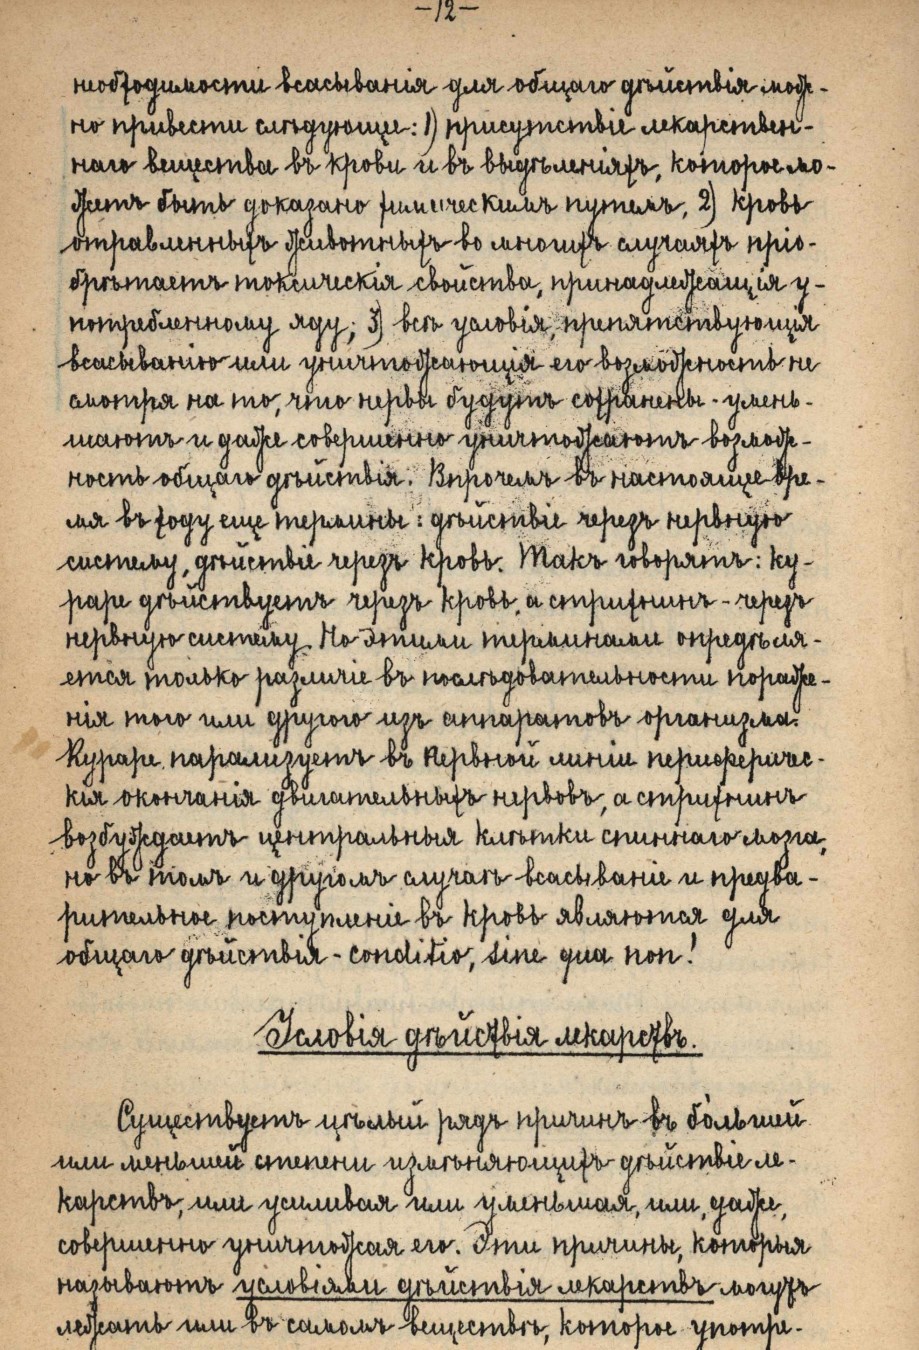 —12—
необходимости всасыванія для общаго дѣйствія мож-
но привести слѣдующіе: 1) присутствіе лекарствен-
наго вещества въ крови и въ выдѣленіяхъ, которое мо-
жетъ быть доказано химическимъ путемъ, 2) кровь
отравленныхъ животныхъ во многихъ случаяхъ прiо-
брѣтаетъ токсическія свойства, принадлежащія у-
потребленному яду; 3) всѣ условія, препятствующія
всасыванію или уничтожающія его возможность не
смотря на то, что нервы будутъ сохранены - умень-
шаютъ и даже совершенно уничтожаютъ возмож-
ность общаго дѣйствія. Впрочемъ въ настоящее вре-
мя въ ходу еще термины: дѣйствіе черезъ нервную
систему, дѣйствіе черезъ кровь. Такъ говорятъ: ку-
раре дѣйствуетъ черезъ кровь, а стрихнинъ - черезъ
нервную систему. Но этими терминами опредѣля-
ется только различіе въ послѣдовательности пораже-
нія того или другого изъ аппаратовъ организма.
Кураре парализуетъ въ первной линіи периферичес-
кія окончанія двигательныхъ нервовъ, а стрихнинъ
возбуждаетъ центральныя клѣтки спиннаго мозга,
но въ томъ и другомъ случаѣ всасываніе и предва-
рительное поступленіе въ кровь являются для
общаго дѣйствія - conditio, sine qua non!
Условія дѣйствія лекарствъ.
Существуетъ цѣлый рядъ причинъ въ бо́льшей
или меньшей степени измѣняющихъ дѣйствіе ле-
карствъ, или усиливая или уменьшая, или, даже,
совершенно уничтожая его. Эти причины, которыя
называютъ условіями дѣйствія лекарствъ могутъ
лежать или въ самомъ веществѣ, которое употре-